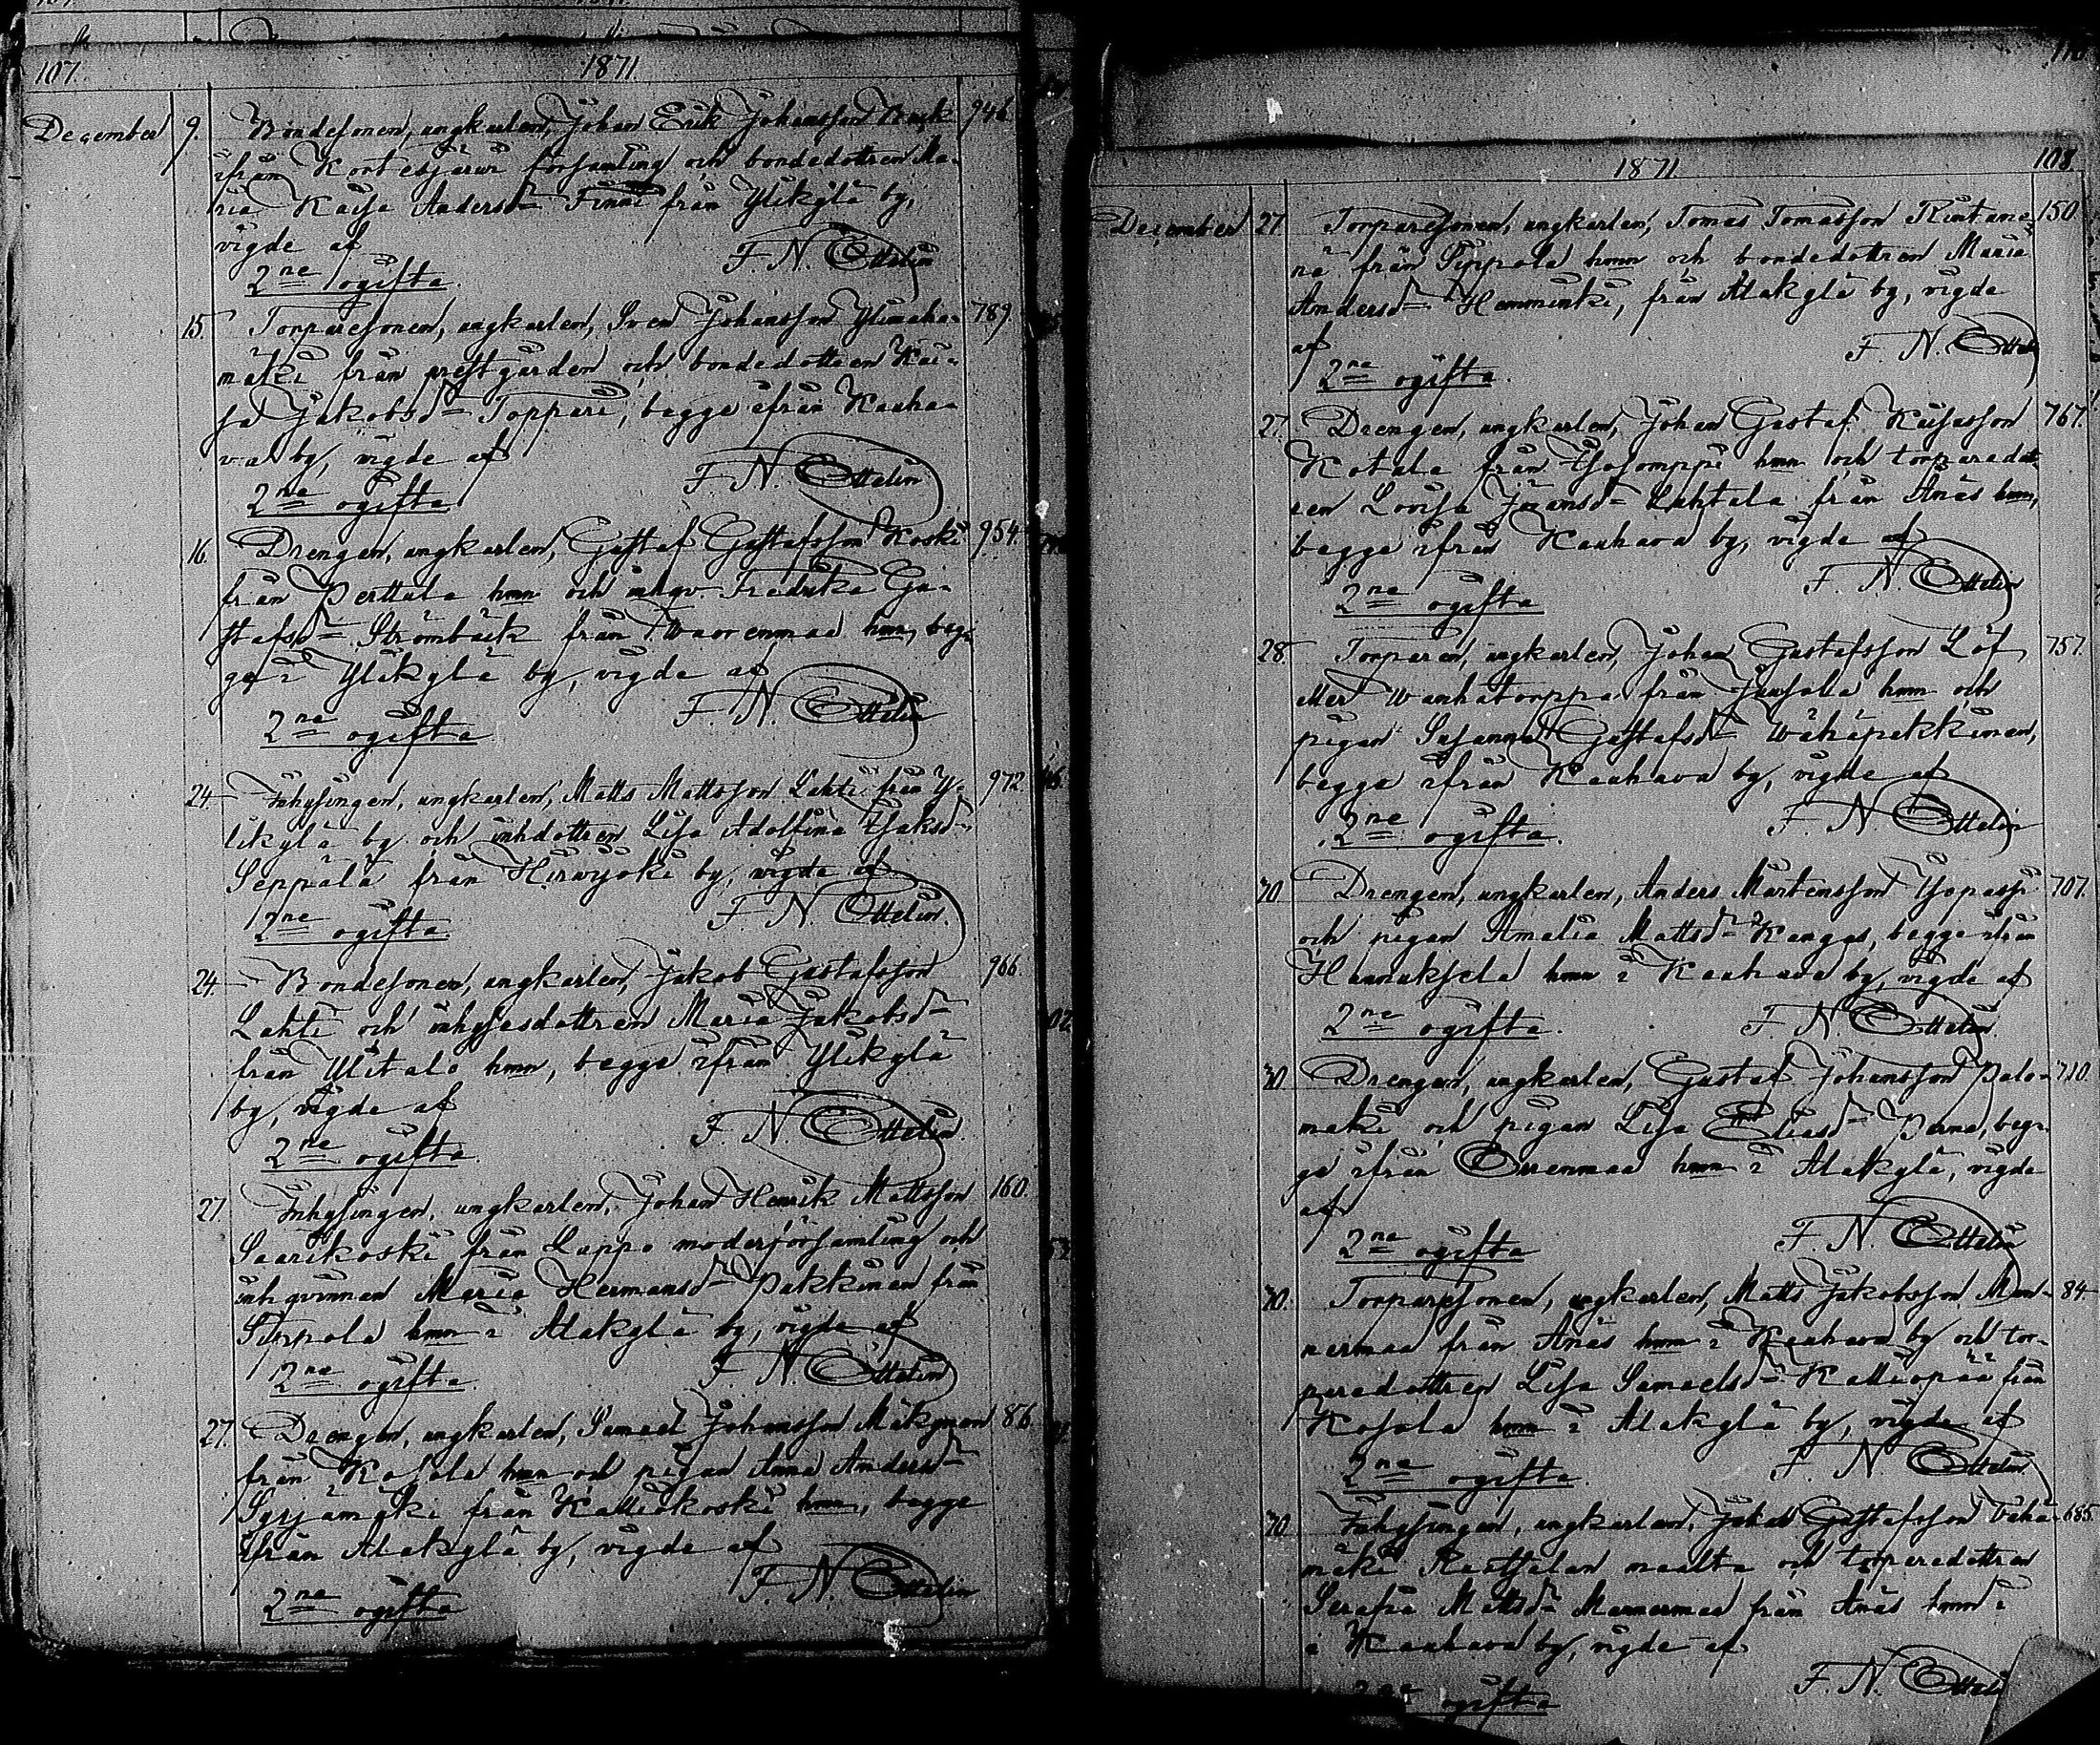 107.
1871
December 9. Bondesonen, ungkarlen, Johan Erik Johansson 946
ifrån Kortesjärvi församling och bondedottren Ma-
ria Kaisa Andersd. Finni från Ylikylä by,
vigde af
F. N. Ottelin
2ne ogifta.
15. Torparesonen, ungkarlen, Sven Johansson Ylimäki- 789.
mäki från prestgården och bondedottren Kai-
sa Jakobsd. Toppari, begge ifrån Kauha-
va by, vigde af
F. N. Ottelin
2ne ogifta
16. Drengen, ungkarlen, Gustaf Gustafsson Koski 954.
från Perttula hmn och inhqv. Fredrika Gu-
stafsd. Strömbäck från Wuorenmaa hmn, beg-
ge i Ylikylä by, vigde af
F. N. Ottelin
2ne ogifta
24. Inhysingen, ungkarlen, Matts Mattsson Lahti från Y- 972
likylä by och inhdottren Lisa Adolfina Isaksd.
Seppälä från Hirvijoki by, vigde af
F. N. Ottelin
2ne ogifta.
24. Bondesonen, ungkarlen, Jakob Gustafsson 966.
Lahti och inhysesdottren Maria Jakobsd.
från Ylitalo hmn, begge ifrån Ylikylä
by, vigde af
F. N. Ottelin
2ne ogifta
27. Inhysingen, ungkarlen, Johan Henrik Mattsson 160.
Saarikoski från Lappo moderförsamling och
inhqvinnan Maria Hermansd. Pakkinen från
Pippola hmn i Alakylä by, vigde af
F. N. Ottelin
2ne ogifta.
27. Drengen, ungkarlen, Samuel Johansson Mäkynen 86.
från Kosola hmn och pigan Anna Andersd.
Syrjämäki från Kalliokoski hmn, begge
ifrån Alakylä by, vigde af
F. N. Ottelin
2ne ogifta
108.
1871
December 27. Torparesonen, ungkarlen, Tomas Tomasson 150.
från Pippola hmn och bondedottren Maria
Andersd. Hemminki, från Alakylä by, vigde
af
F. N. Ottelin
2ne ogifta.
27. Drengen, ungkarlen, Johan Gustaf Kaisasson 767.
Kotala från Isosomppi hmn och torparedott-
ren Lovisa Johansd. Lahtala från Ånäs hmn,
begge ifrån Kauhava by, vigde af
F. N. Ottelin
2ne ogifta
28. Torparen, ungkarlen, Johan Gustafsson Löf 757.
eller Wanhatorppa från Jausala hmn och
pigan Susanna Gustafsd. Wähäpakkinen,
begge ifrån Kauhava by, vigde af
F. N. Ottelin
2ne ogifta.
30. Drengen, ungkarlen, Anders Mårtensson Isopassi 707.
och pigan Amalia Mattsd. Kangas, begge ifrån
Hannuksela hmn i Kauhava by, vigde af
F. N. Ottelin
2ne ogifta.
30. Drengen, ungkarlen, Gustaf Johansson Palo- 710.
mäki och pigan Lisa Eliasd. Perna, beg-
ge ifrån Orrenmaa hmn i Alakylä, vigde
af
F. N. Ottelin
2ne ogifta
30. Torparesonen, ungkarlen, Matts Jakobsson Man- 84.
nermaa från Ånäs hmn i Kauhava by och tor-
paredottren Lisa Samuelsd. Kalliopää från
Kosola hmn i Alakylä by, vigde af
F. N. Ottelin
2ne ogifta.
30. Inhysingen, ungkarlen, Jakob Gustafsson Vähä- 685.
mäki Ruotsalan maalta och torparedottren
Serafia Mattsd. Mannermaa från Ånäs hmn
i Kauhava by, vigde af
F. N. Ottelin
2ne ogifta